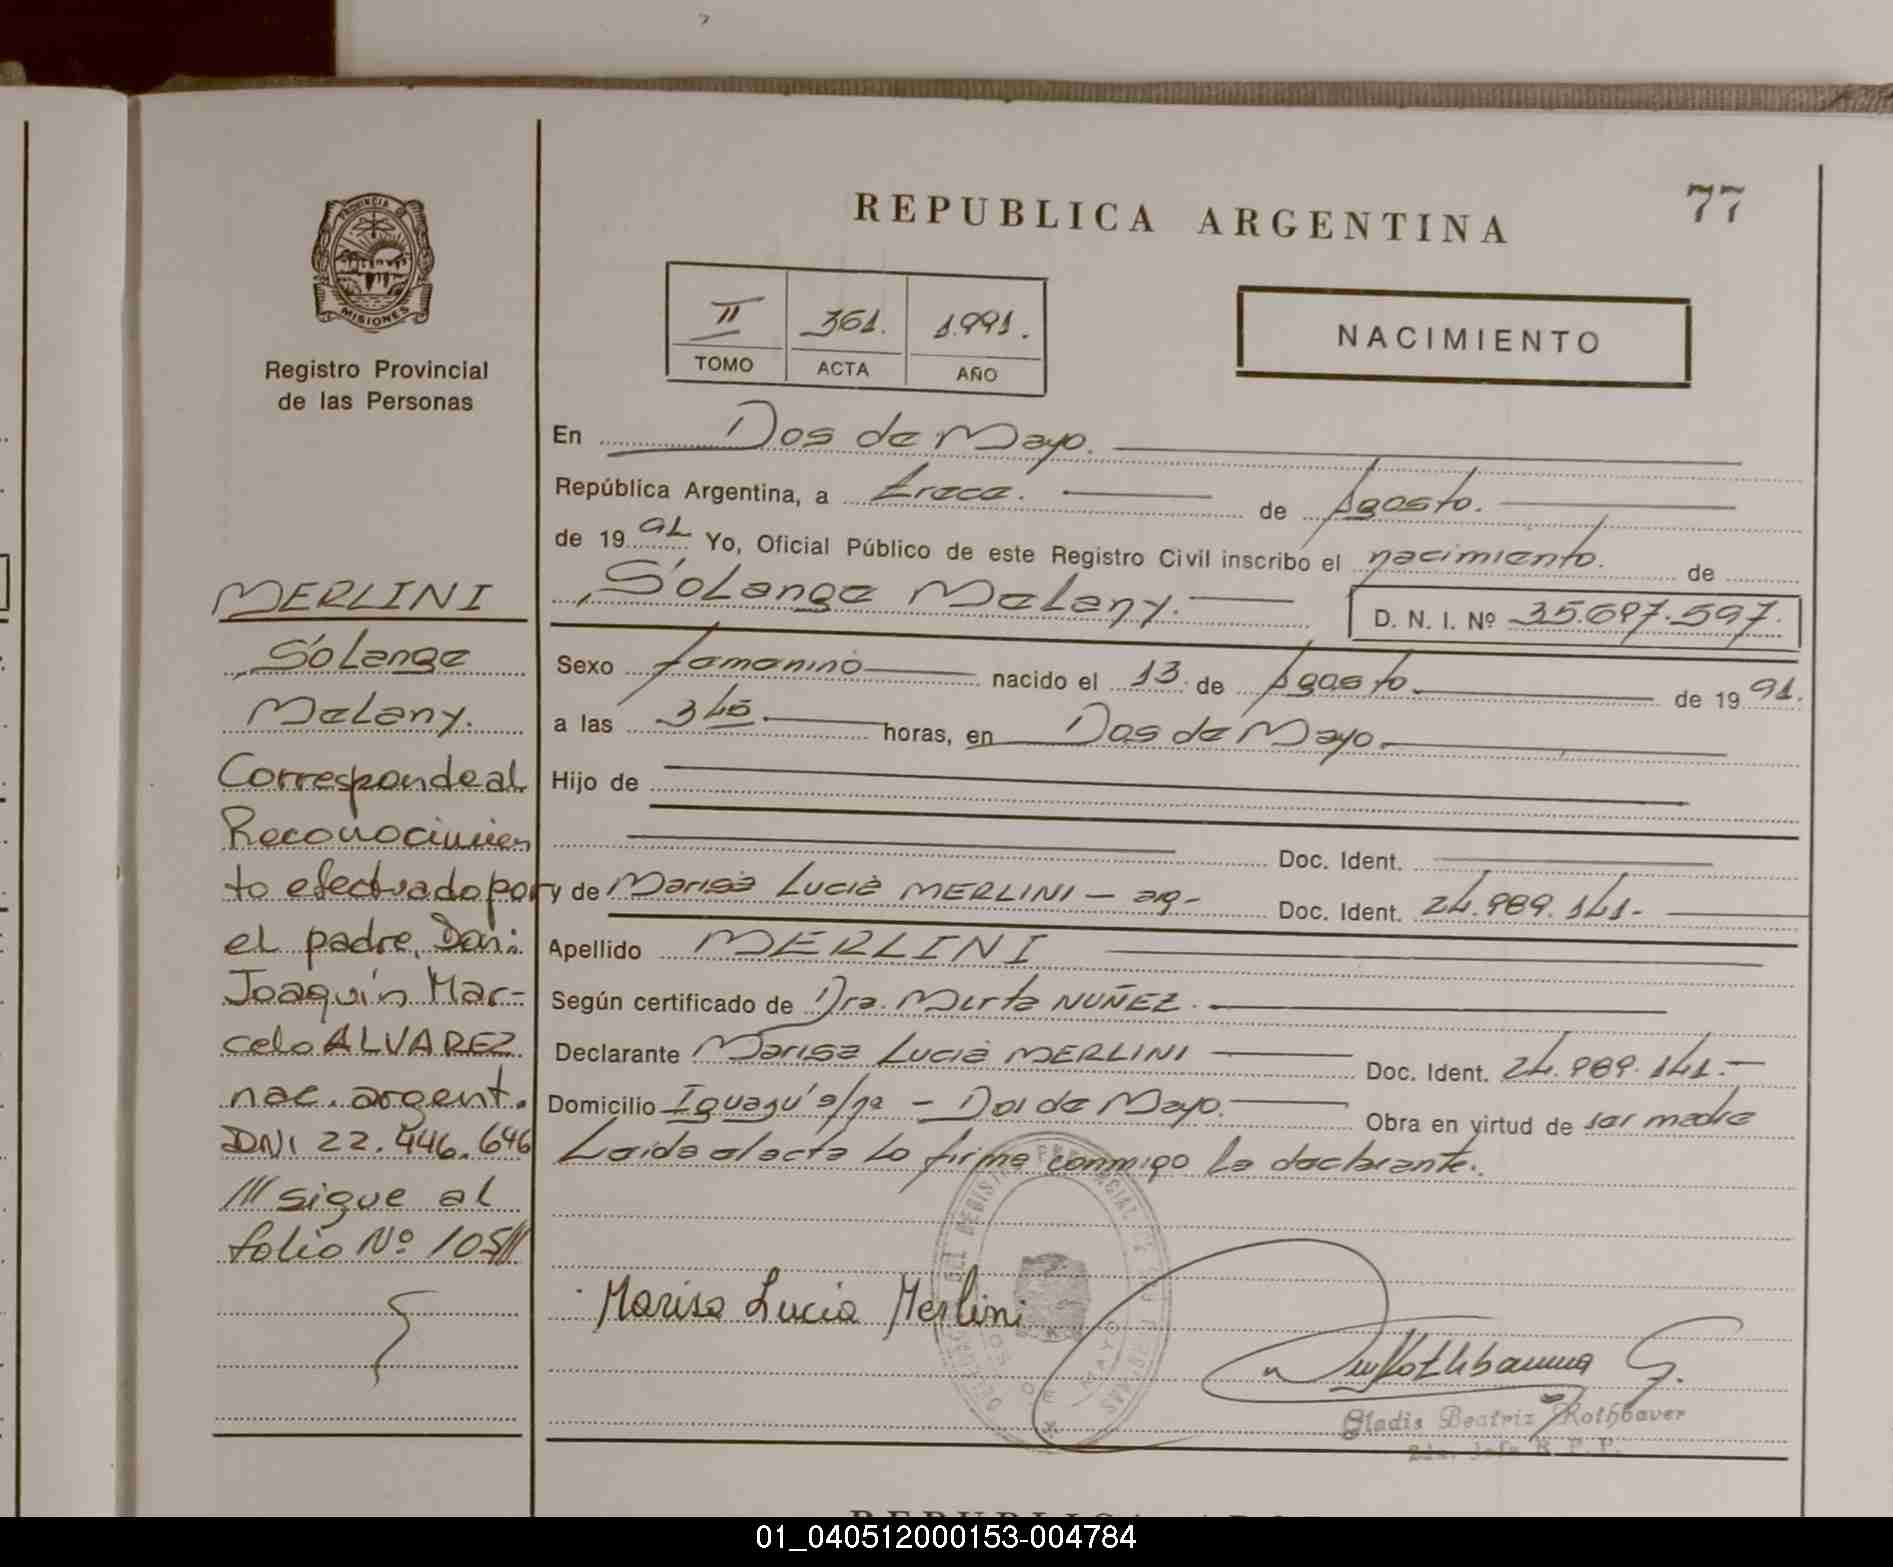 77
REPUBLICA ARGENTINA
PROVINCIA DE
MISIONES
Registro Provincial
de las Personas
II 361. 1.991.
TOMO ACTA AÑO
NACIMIENTO
En Dos de Mayo.
República Argentina, a trece. de Agosto.
de 19 91 Yo, Oficial Público de este Registro Civil inscribo el nacimiento. de
Solange Melany. D. N. I. Nº 35.697.597.
Sexo femenino nacido el 13 de Agosto de 19 91.
a las 340 horas, en Dos de Mayo.
Hijo de
Doc. Ident.
y de Marisa Lucia MERLINI - arg- Doc. Ident. 24.989.141-
Apellido MERLINI
Según certificado de Dra. Mirta NUÑEZ.
Declarante Marisa Lucia MERLINI Doc. Ident. 24.989.141.-
Domicilio Iguazú s/nº - Dos de Mayo. Obra en virtud de ser madre
Leida el acta lo firma conmigo la declarante.
Marisa Lucia Merlini
Gladis Beatriz Rothbaver
2da. Jefe R. P. P.
MERLINI
Solange
Melany.
Corresponde al
Reconocimien
to efectuado por
el padre, Don:
Joaquín Mar-
celo ALVAREZ
nac. argent.
DNI 22.446.646
/// sigue al
folio Nº 105///
REPUBLICA ARGE
01_040512000153-004784